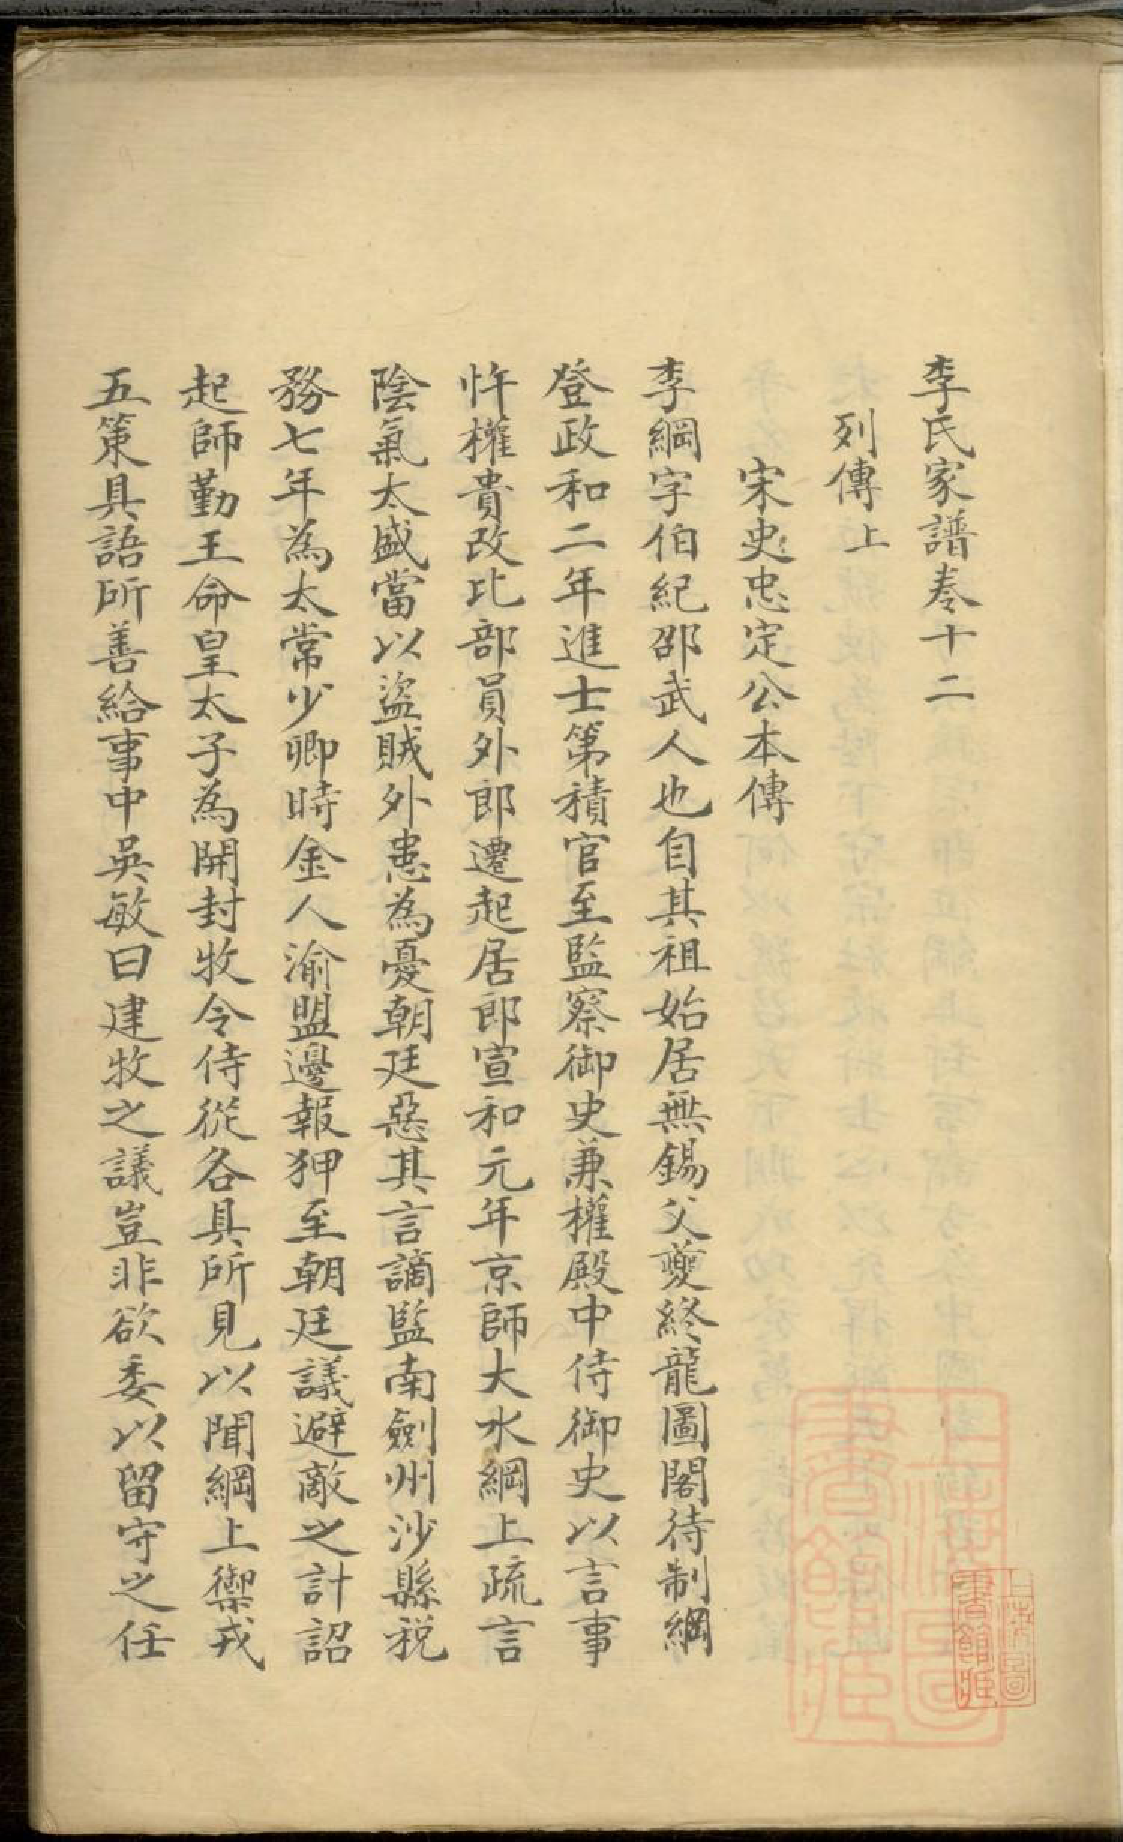 李氏家譜卷十二
列傳上
宋史忠定公本傳
李綱字伯紀邵武人也自其祖始居無錫父夔終龍圖閣待制綱
登政和二年進士第積官至監察御史兼權殿中侍御史以言事
忤權貴改比部員外郎遷起居郎宣和元年京師大水綱上疏言
陰氣太盛當以盜賊外患為憂朝廷惡其言謫監南劍州沙縣稅
務七年為太常少卿時金人渝盟邊報狎至朝廷議避敵之計詔
起師勤王命皇太子為開封牧令侍從各具所見以聞綱上禦戎
五策具語所善給事中吳敏曰建牧之議豈非欲委以留守之任
上海圖書館藏
上海圖書館藏